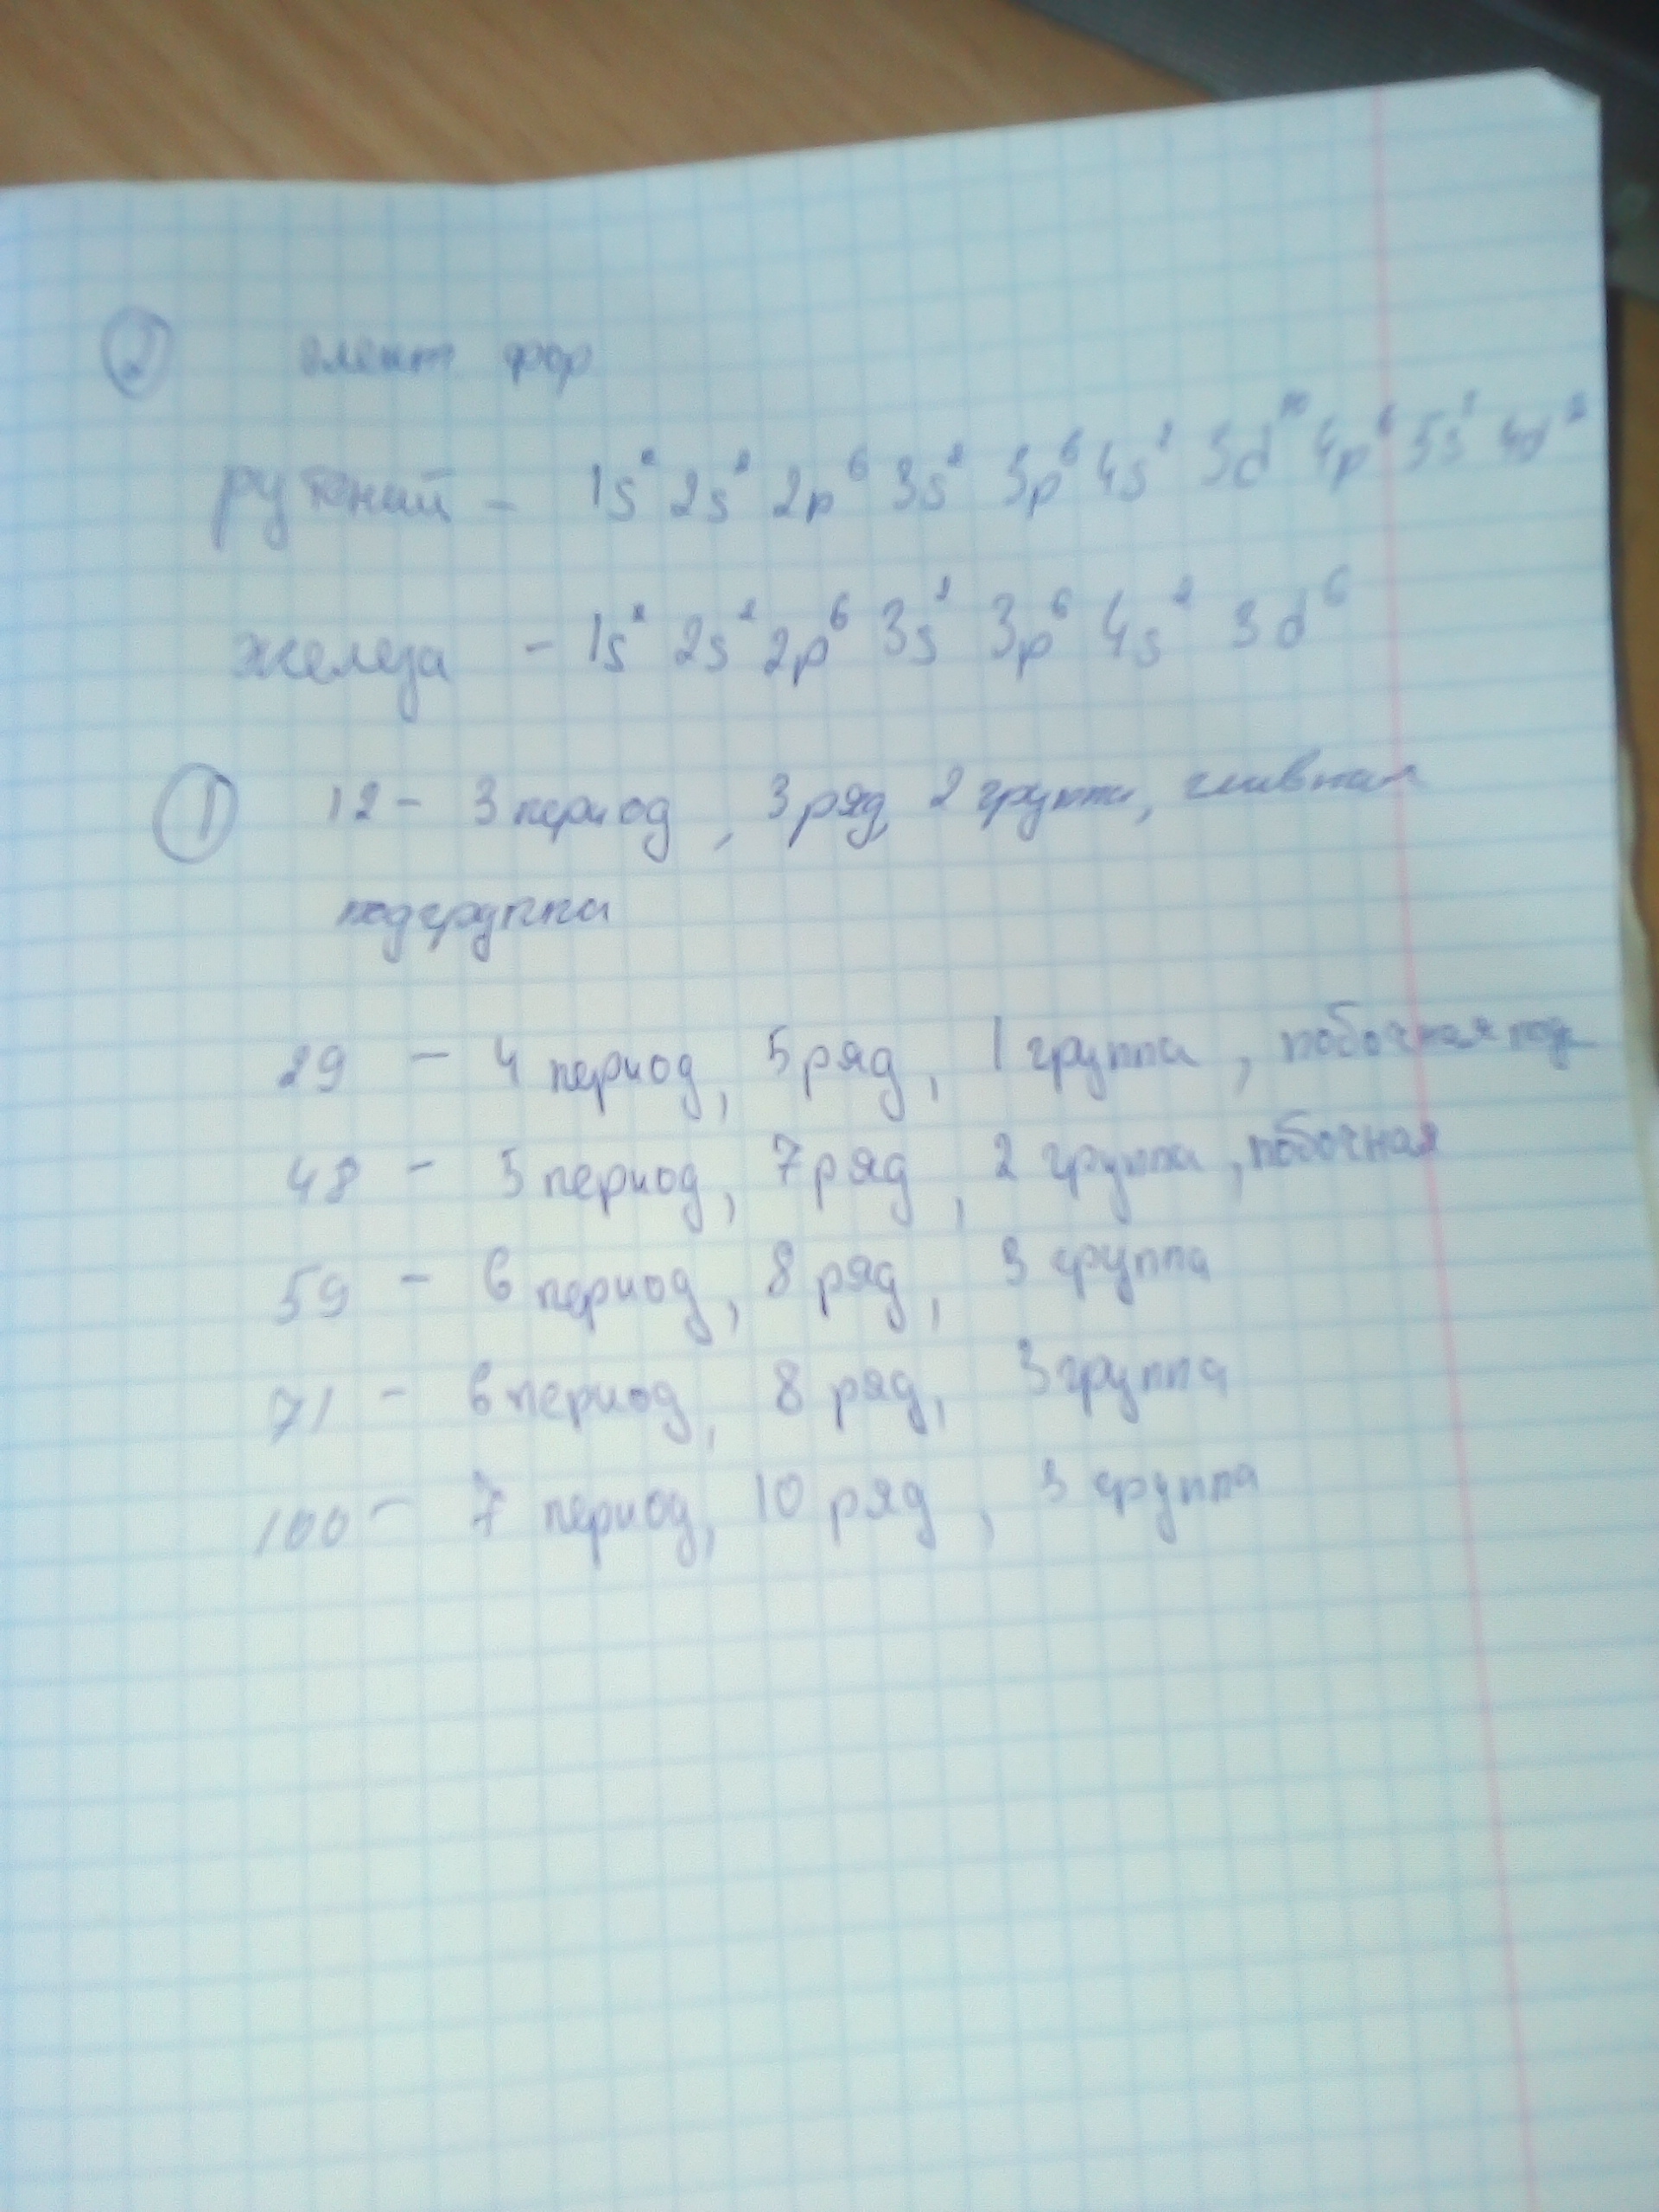 2 элект фор
рутений - 1s² 2s² 2p⁶ 3s² 3p⁶ 4s² 3d¹⁰ 4p⁶ 5s² 4d²
железа - 1s² 2s² 2p⁶ 3s² 3p⁶ 4s² 3d⁶
1 12 - 3 период, 3 ряд, 2 группа, главная
подгруппа
29 - 4 период, 5 ряд, 1 группа, побочная под
48 - 5 период, 7 ряд, 2 группа, побочная
59 - 6 период, 8 ряд, 3 группа
71 - 6 период, 8 ряд, 3 группа
100 - 7 период, 10 ряд, 3 группа